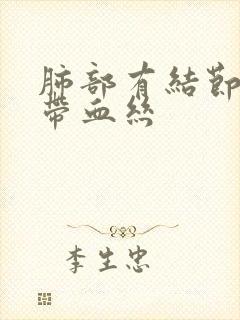 肺部有結節
帶血絲
李生忠